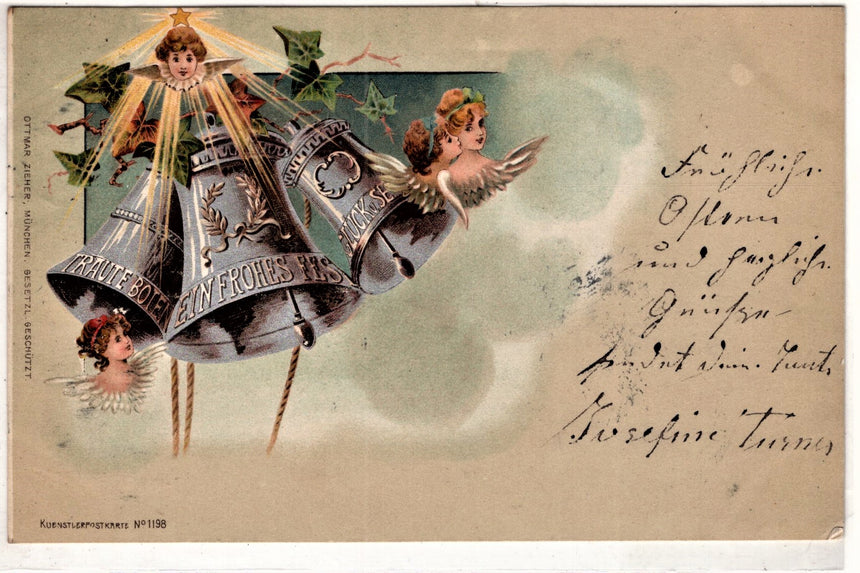 OTTMAR ZIEHER, MÜNCHEN. GESETZL. GESCHÜTZT
TRAUTE BOTEN
EIN FROHES FES
LÜCK U. SE
Fröhliche
Ostern
und herzliche
Grüsse
sendet Deine Tante
Josefine Turner
KUENSTLERPOSTKARTE No 1198